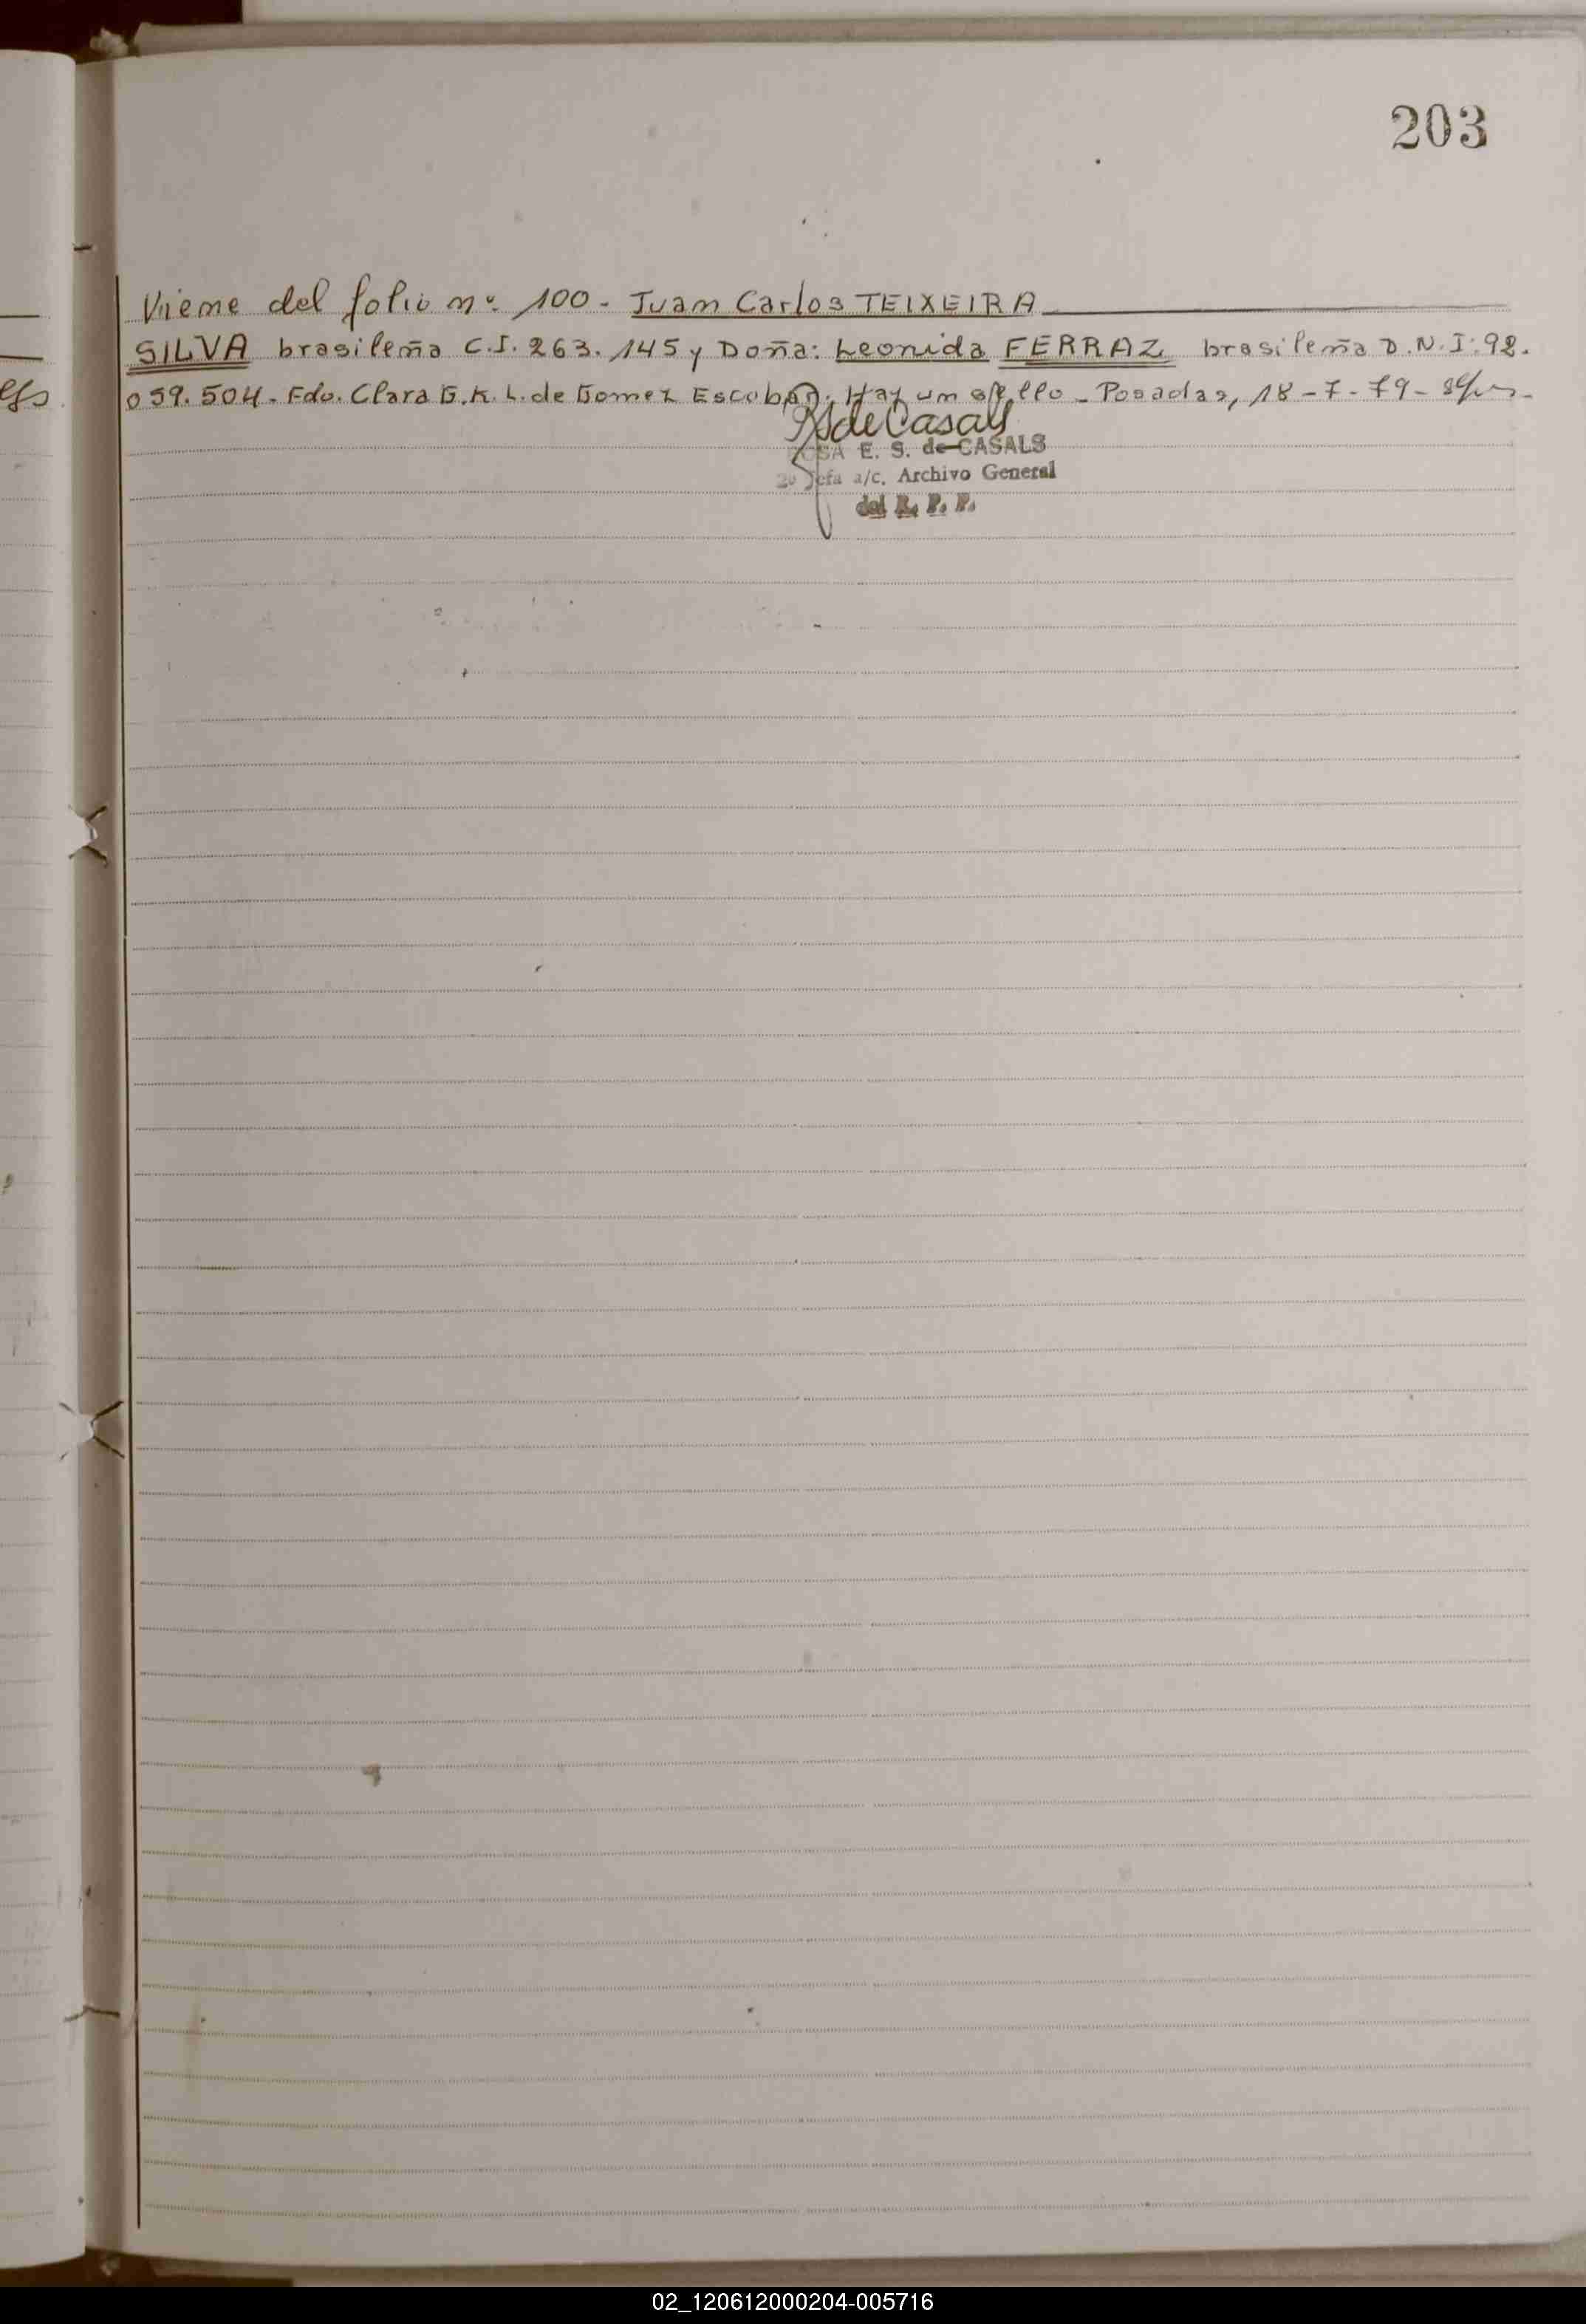 203
Viene del folio nº 100 - Juan Carlos TEIXEIRA
SILVA brasileña C.I. 263.145 y Doña: Leonida FERRAZ brasileña D.N.I: 92.
059.504. Fdo. Clara G.K.L. de Gomez Escobar. Hay un sello - Posadas, 18-7-79-
de Casals
ROSA E. S. de CASALS
Jefa a/c. Archivo General
del R. P. P.
02_120612000204-005716